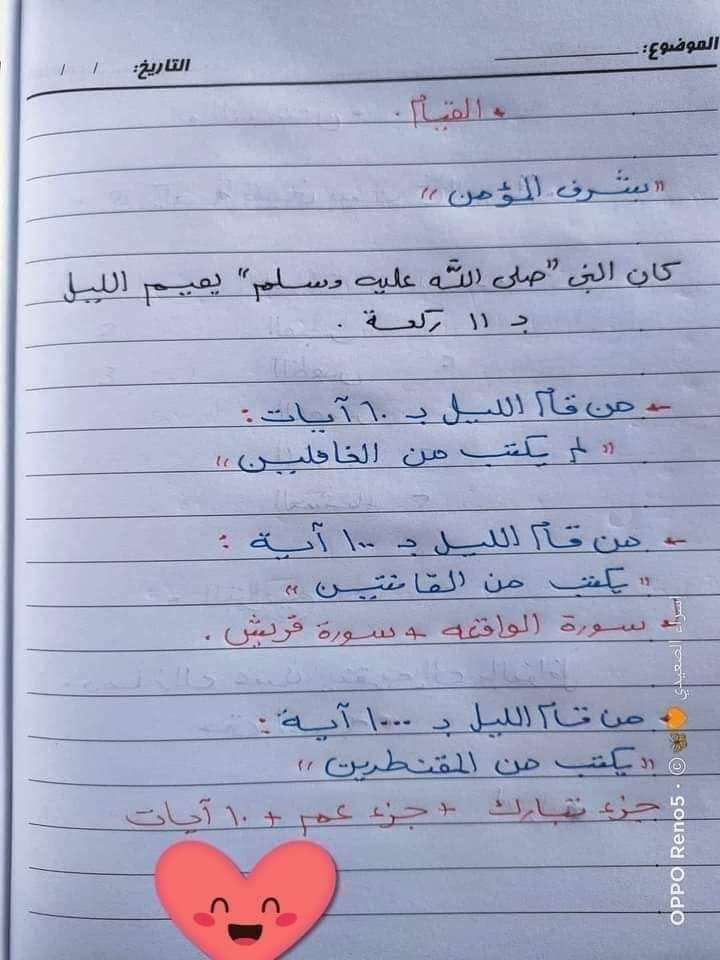 الموضوع:
التاريخ: / /
القيام.
"شرف المؤمن"
كان النبي "صلى الله عليه وسلم" يقيم الليل
بـ ١١ ركعة.
← من قام الليل بـ ١٠ آيات:
"لم يكتب من الغافلين"
← من قام الليل بـ ١٠٠ آية:
"يكتب من القانتين"
* سورة الواقعه + سورة قريش.
← من قام الليل بـ ١٠٠٠ آية:
"يكتب من المقنطرين"
جزء تبارك + جزء عم + ١٠ آيات
OPPO Reno5 · © 🦋🧡 اسراء الصعيدي